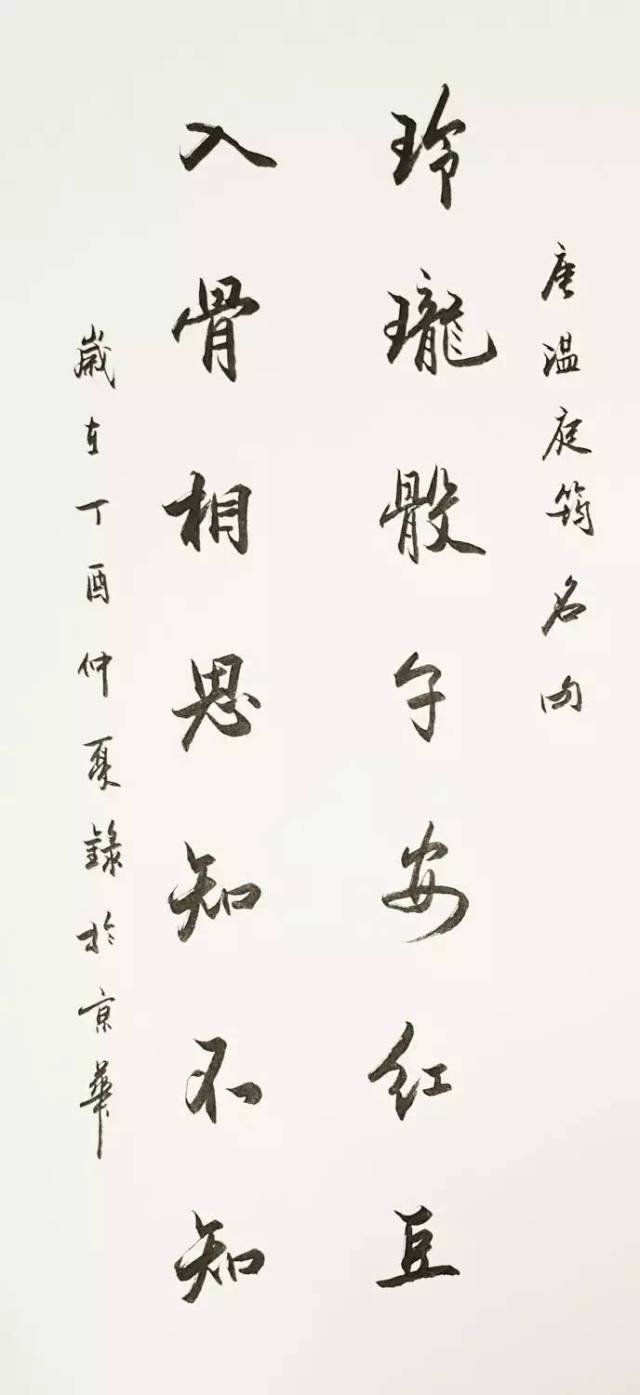 唐温庭筠名句
玲瓏骰子安红豆
入骨相思知不知
歲在丁酉仲夏錄於京華